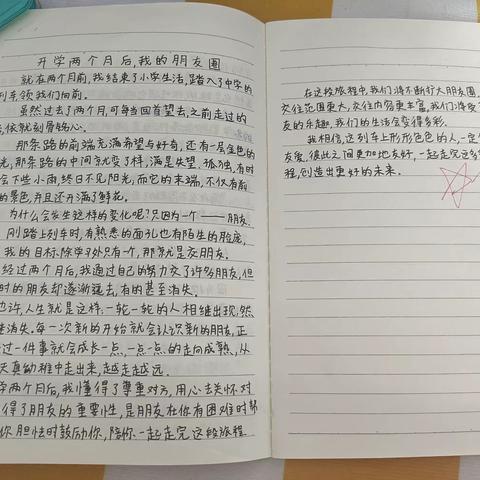 开学两个月后,我的朋友圈
就在两个月前,我结束了小学生活,踏入了中学的
列车领我们向前.
虽然过去了两个月,可每当回首望去,之前走过的
依就刻骨铭心.
那条路的前端充满希望与好奇,还有一层金色的
光,那条路的中间就变了样,满是失望、孤独,有时
会下些小雨,终日不见阳光,而它的末端,不仅有前
的景色,并且还开满了鲜花.
为什么会发生这样的变化呢?只因为一个——朋友.
刚踏上列车时,有熟悉的面孔也有陌生的脸庞,
我的目标除学习外只有一个,那就是交朋友.
经过两个月后,我通过自己的努力交了许多朋友,但
时的朋友却逐渐褪去,有的甚至消失.
也许,人生就是这样,一轮一轮的人相继出现,然
继消失.每一次新的开始就会认识新的朋友,正
过一件事就会成长一点,一点一点的走向成熟,从
天真幼稚中走出来,越走越远.
学两个月后,我懂得了尊重对方,用心去关怀对
得了朋友的重要性,是朋友在你有困难时帮
你胆怯时鼓励你,陪你一起走完这段旅程
在这段旅程中,我们将不断扩大朋友圈,
交往范围更大,交往内容更丰富,我们将享受
友的乐趣,我们的生活会变得多彩.
我相信,这列车上形形色色的人,一定
友爱,彼此之间更加地友好,一起走完这
程,创造出更好的未来.